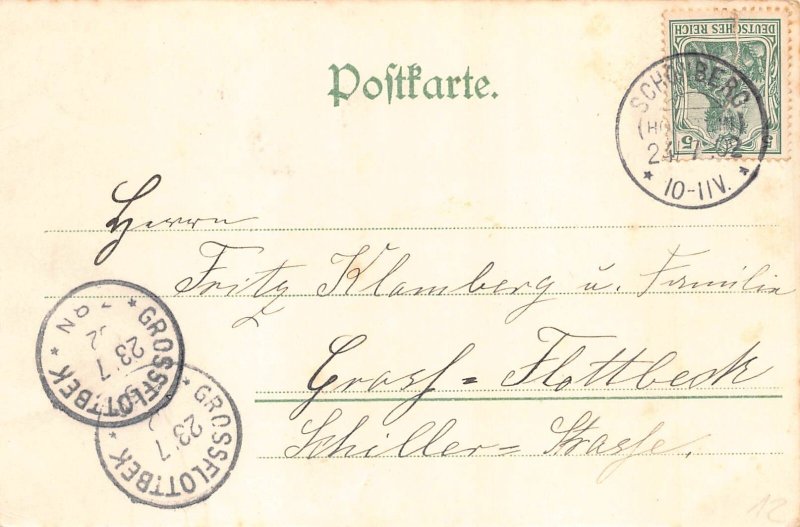 DEUTSCHES REICH
5 5
Postkarte.
SCHÖNBERG
7 02
* 10-11V. *
Herrn
Fritz Klamberg u. Familie
Gross=Flottbeck
Schiller=Strasse.
* GROSSFLOTTBEK *
23 7
8N
* GROSSFLOTTBEK *
23 7
12